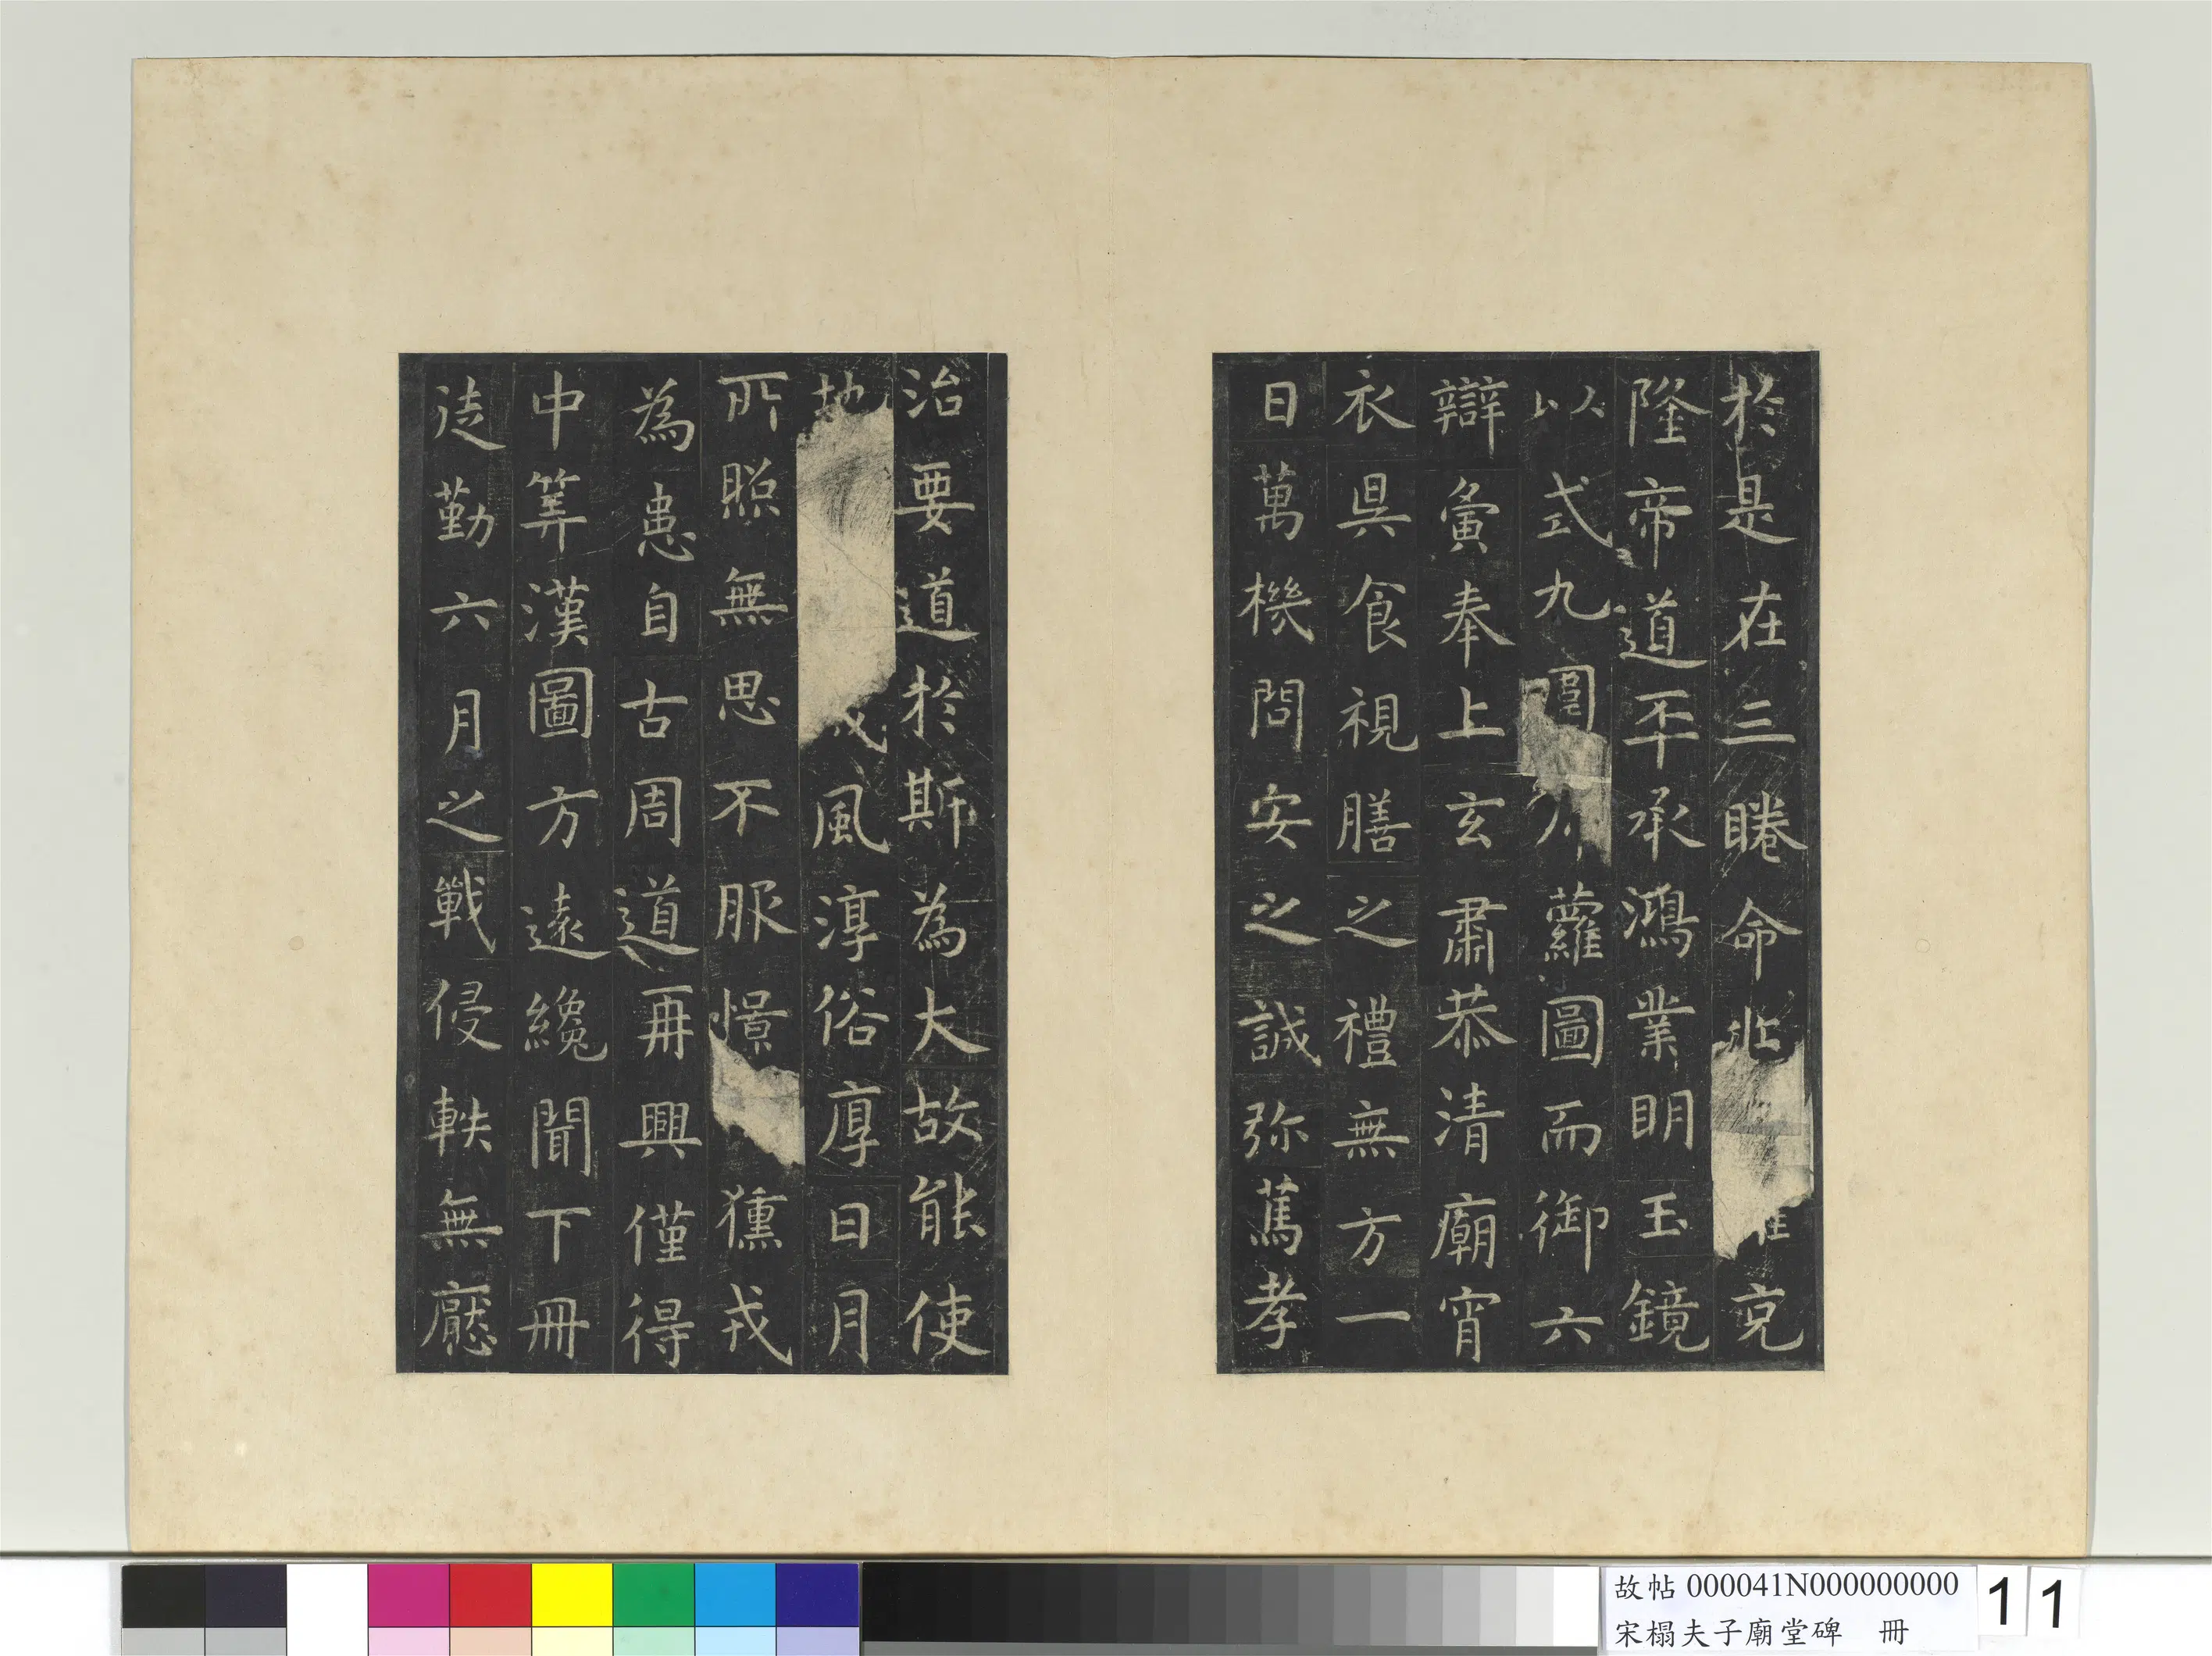 於是在三睠命克
隆帝道丕承鴻業明玉鏡
以式九圍蘿圖而御六
辯夤奉上玄肅恭清廟宵
衣昃食視膳之禮無方一
日萬機問安之誠弥篤孝
治要道於斯為大故能使
地成風淳俗厚日月
所照無思不服憬獯戎
為患自古周道再興僅得
中筭漢圖方遠纔聞下冊
徒勤六月之戰侵軼無厭
故帖 000041N000000000
宋榻夫子廟堂碑 冊
11